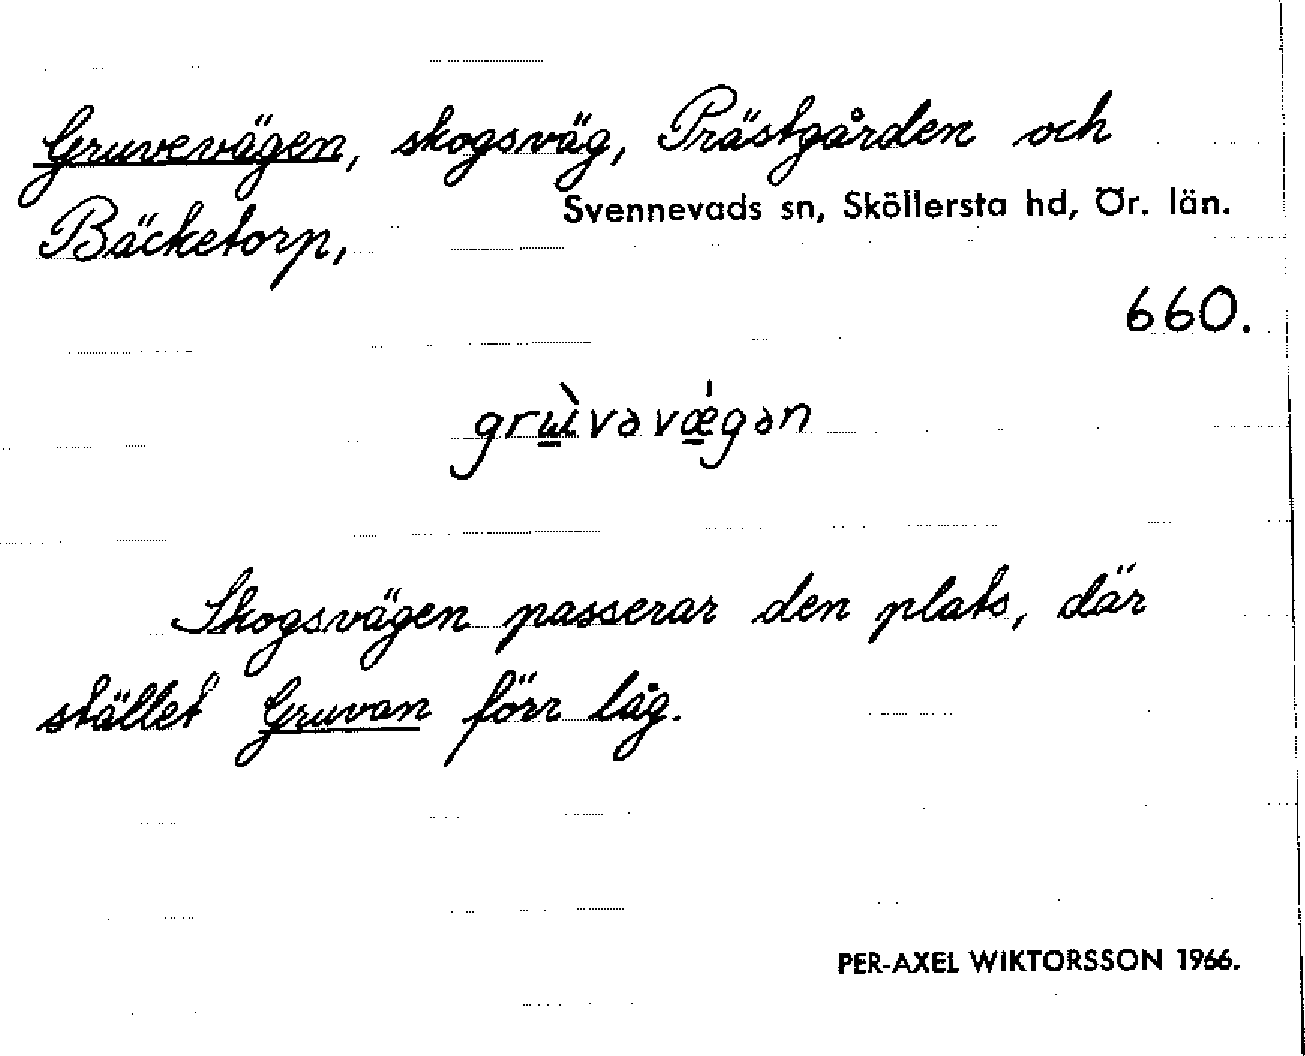 Gruvevägen, skogsväg, Prästgården och
Svennevads sn, Sköllersta hd, Ör. län.
Bäcketorp,
660.
grɯ̀vəvǽgən
Skogsvägen passerar den plats, där
stället Gruvan förr låg.
PER-AXEL WIKTORSSON 1966.